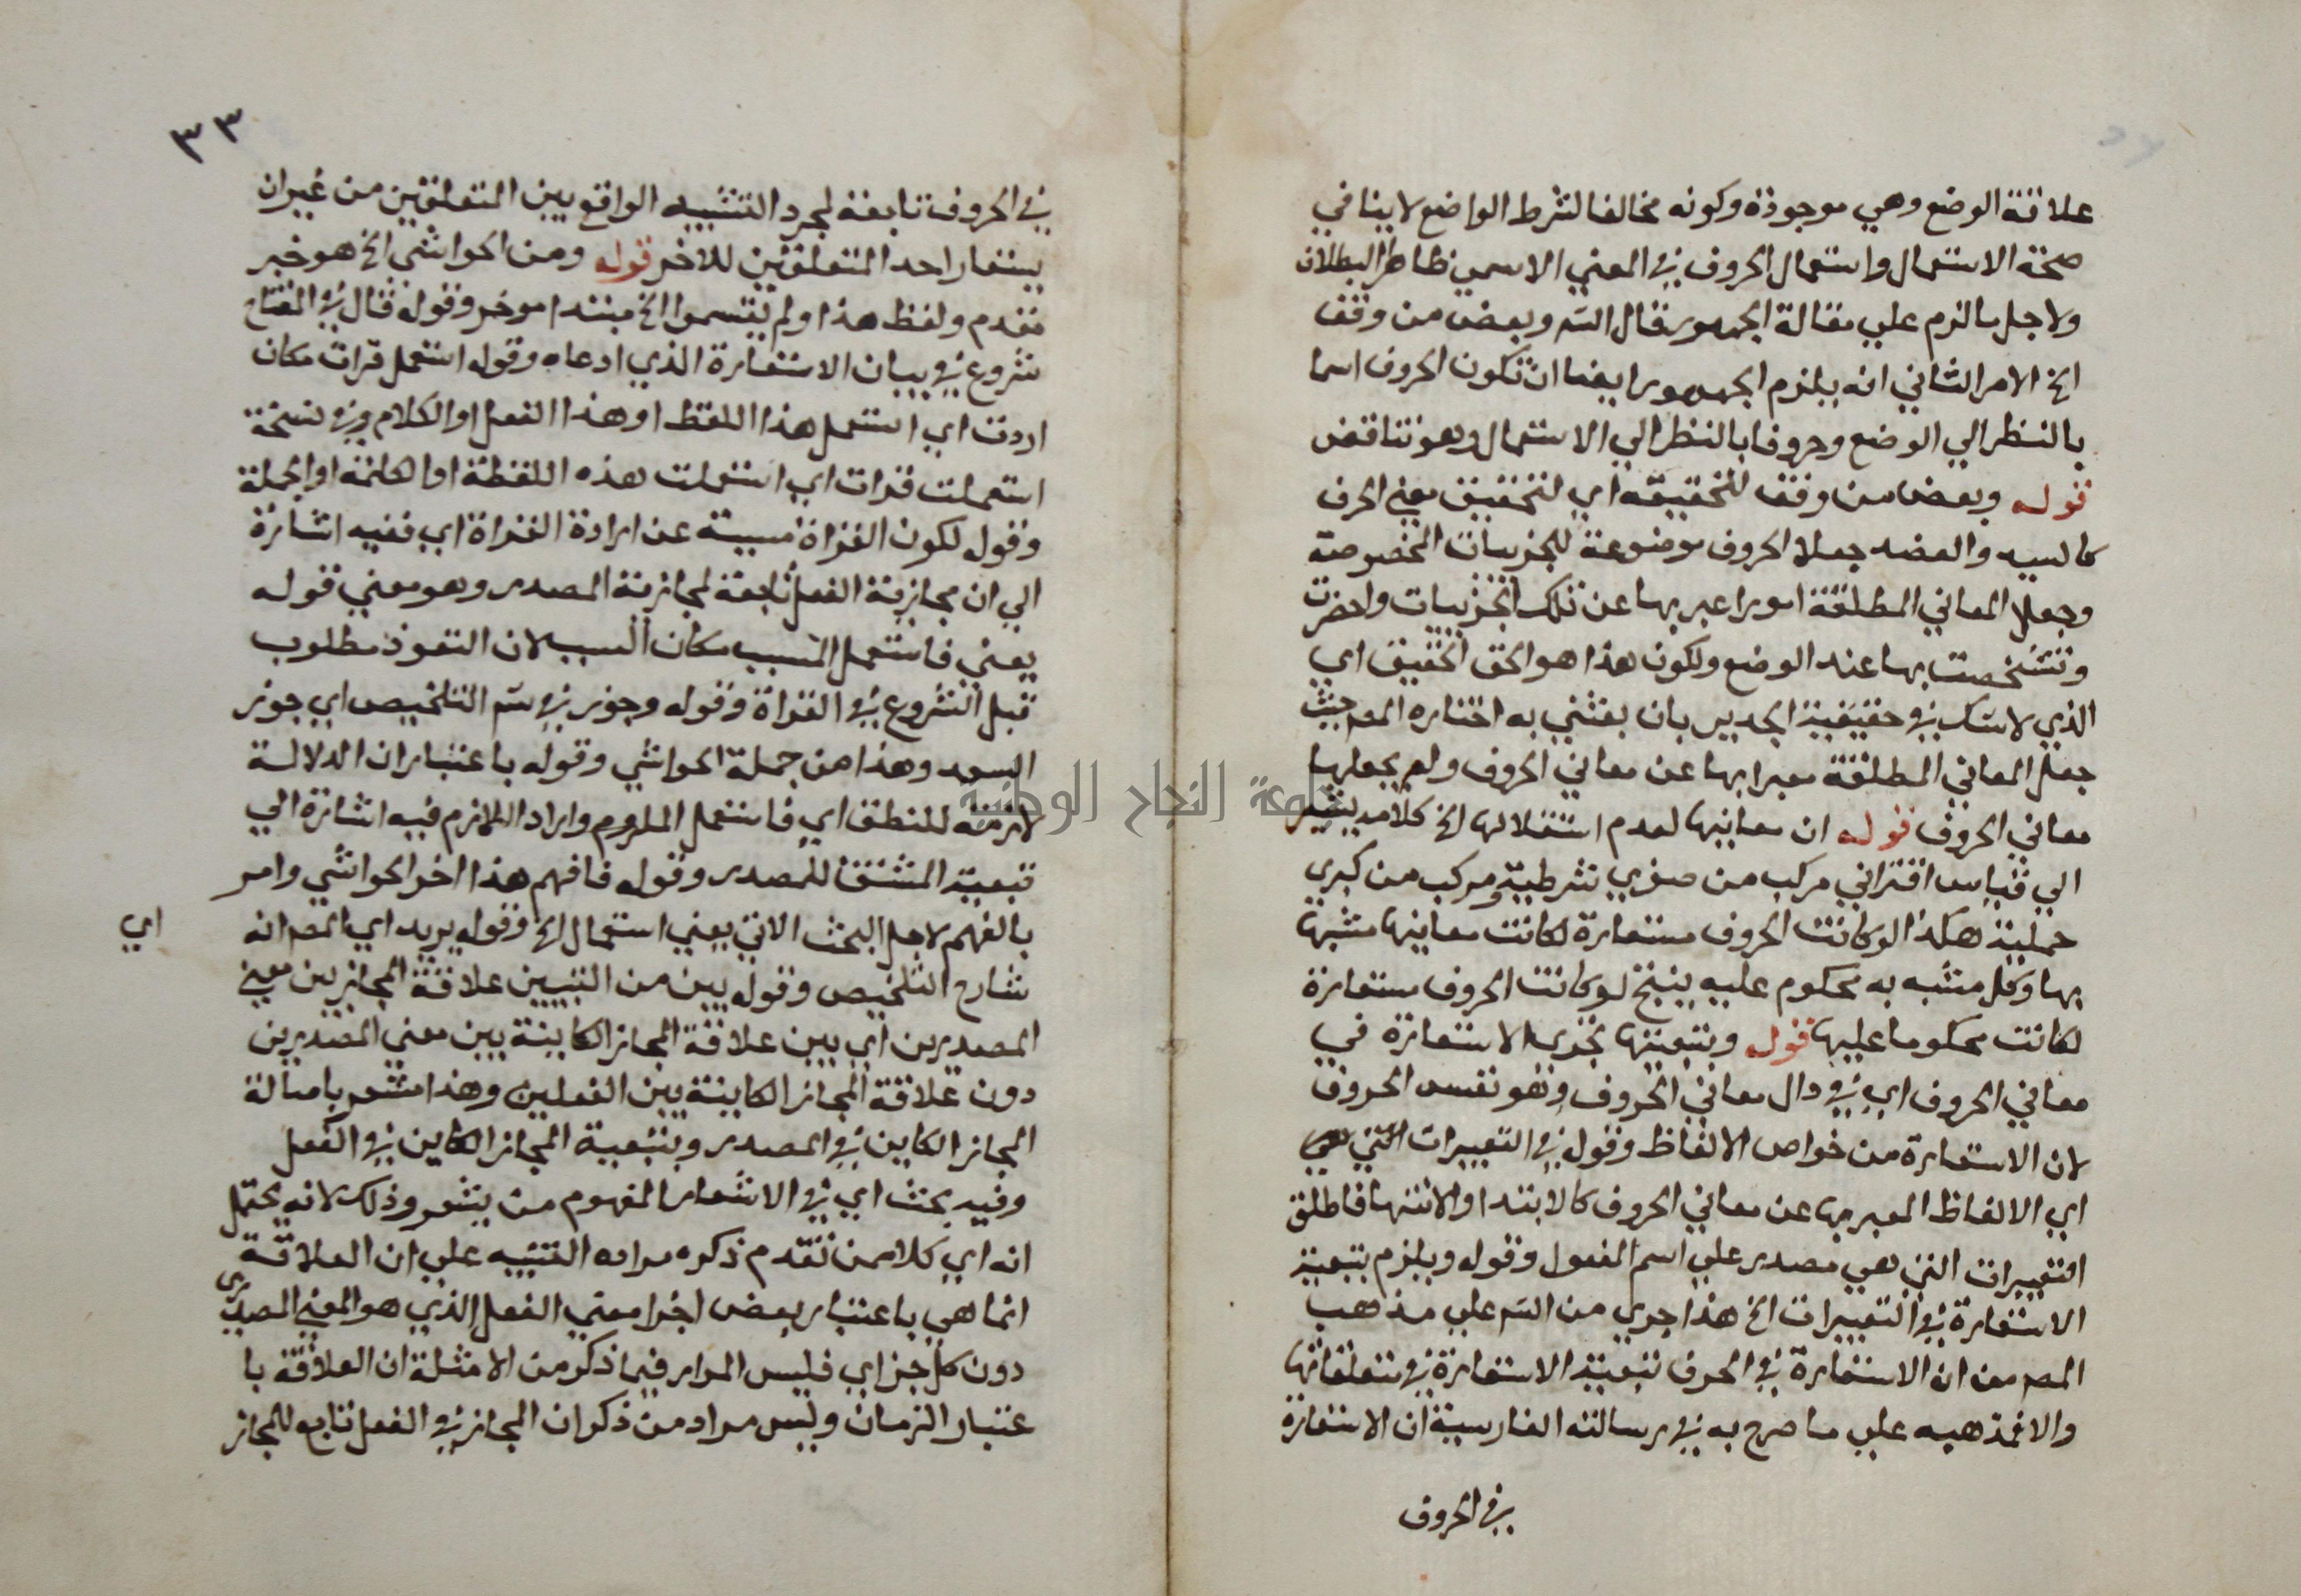 علاقة الوضع وهي موجودة وكونه مخالفا لشرط الواضع لا ينافي
صحة الاستعمال واستعمال الحروف في المعني الاسمي ظاهر البطلان
ولاجل ما لزم علي مقالة الجمهور قال الشم وبعض من وقف
الخ الامر الثاني انه يلزم الجمهور ايضا ان تكون الحروف اسما
بالنظر الي الوضع وحروفا بالنظر الي الاستعمال وهو تناقض
قوله وبعض من وقف لتحقيقه اي لتحقيق معني الحرف
كالسيد والعضد جعلا الحروف موضوعة للجزييات المخصوصة
وجعلا المعاني المطلقة امورا عبر بها عن تلك الجزييات واحضرت
وتشخصت بها عند الوضع ولكون هذا هو الحق الحقيق اي
الذي لا شك في حقيقية الجدير بان يعتني به اختاره المصم حيث
جعل المعاني المطلقة معبرا بها عن معاني الحروف ولم يجعلها
معاني الحروف قوله ان معانيها لعدم استقلالها الخ كلامه يشير
الي قياس اقتراني مركب من صغري شرطية ومركب من كبري
حملية هكذا لو كانت الحروف مستعارة لكانت معانيها مشبها
بها وكل مشبه به محكوم عليه ينتج لو كانت الحروف مستعارة
لكانت محكوما عليها قوله وبتبعيتها تجري الاستعارة في
معاني الحروف اي في دال معاني الحروف وهو نفس الحروف
لان الاستعارة من خواص الالفاظ وقوله في التعبيرات التي هي
اي الالفاظ المعبر بها عن معاني الحروف كالابتدا والانتها فاطلق
التعبيرات التي هي مصدر علي اسم المفعول وقوله ويلزم بتبعية
الاستعارة في التعبيرات الخ هذا جري من الشم علي مذهب
المصم من ان الاستعارة في الحرف بتبعية الاستعارة في متعلقاتها
والا فمذهبه علي ما صرح به في رسالته الفارسية ان الاستعارة
في الحروف
٣٣
في الحروف تابعة لمجرد التشبيه الواقع بين المتعلقين من غير ان
يستعار احد المتعلقين للاخر قوله ومن الحواشي الخ هو خبر
مقدم ولفظ هذا ولم يقسموا الخ مبتدا موخر وقوله قال في المفتاح
شروع في بيان الاستعارة الذي ادعاه وقوله استعمل قرات مكان
اردت اي استعمل هذا اللفظ او هذا الفعل او الكلام وفي نسخة
استعملت قرات اي استعملت هذه اللفظة او الكلمة او الجملة
وقوله لكون القراة مسببة عن ارادة القراة اي ففيه اشارة
الي ان مجازية الفعل تابعة لمجازية المصدر وهو معني قوله
يعني فاستعمل المسبب مكان السبب لان التعوذ مطلوب
قبل الشروع في القراة وقوله وجوز في شم التلخيص اي جوز
السعد وهذا من جملة الحواشي وقوله باعتبار ان الدلالة
لازمة للمنطق اي فاستعمل الملزوم واراد اللازم فيه اشارة الي
تبعية المشتق للمصدر وقوله فافهم هذا اخر الحواشي وامر
بالفهم لاجل البحث الاتي يعني استعمال الخ وقوله يريد اي المصم انه
اي
شارح التلخيص وقوله يبين من التبيين علاقة المجاز بين معني
المصدرين اي يبين علاقة المجاز الكاينة بين معني المصدرين
دون علاقة المجاز الكاينة بين الفعلين وهذا مشعر باصالة
المجاز الكاين في المصدر وبتبعية المجاز الكاين في الفعل
وفيه بحث اي في الاشعار المفهوم من يشعر وذلك لانه يحتمل
انه اي كلا ممن تقدم ذكره مراده التنبيه علي ان العلاقة
انما هي باعتبار بعض اجزا معني الفعل الذي هو المعني المصدري
دون كل جز اي فليس المراد فيما ذكر من الامثلة ان العلاقة با
عتبار الزمان وليس مراد من ذكر ان المجاز في الفعل تابع للمجاز
جامعة النجاح الوطنية